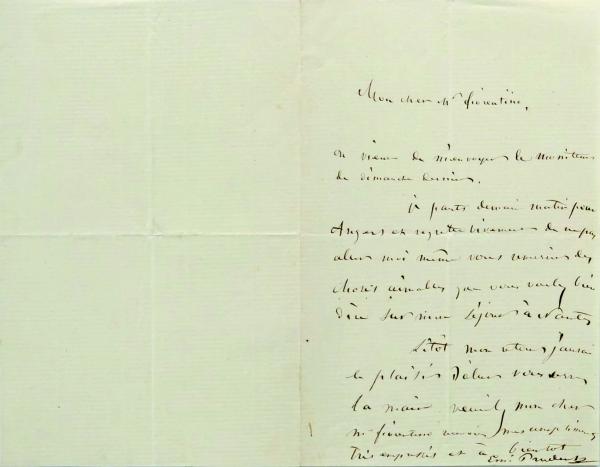 Mon cher Mr Fiorentino,
on vient de m'envoyer le moniteur
de dimanche dernier.
je parts demain matin pour
Angers et regrette vivement de ne pas
aller moi même vous remercier des
choses aimables que vous voulez bien
dire sur mon séjour à Nantes
Sitôt mon retour j'aurai
le plaisir d'aller vous serrer
la main veuillez mon cher
mr fiorentino recevoir mes compliments
Très empressés et à bientot
Emi. Prudent